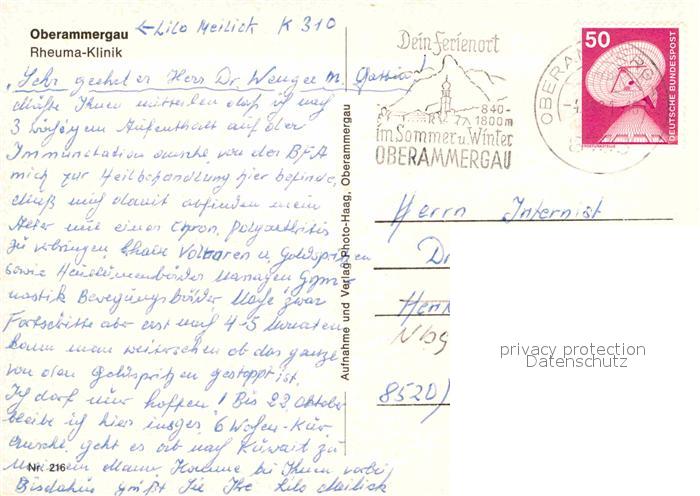 Oberammergau ←Lilo Meilick K 310
Rheuma-Klinik
"Sehr geehrter Herr Dr. Wenger
möchte Ihnen mitteilen daß ich nach
3 wöchigem Aufenthalt auf der
Immunstation von der BFA
mich zur Heilbehandlung hier befinde,
muß mich damit abfinden mein
Alter mit einer chron. Polyarthritis
zu verbringen. Goldspritzen
sowie Massagen Gym-
nastik Bewegungsbäder zwar
Fortschritte aber erst nach 4-5 Monaten
kann man weitersehen ob das ganze
von den Goldspritzen gestoppt ist.
Ich darf nur hoffen! Bis 23. Oktober
bleibe ich hier insges. 6 Wochen-Kur
geht es ab nach Kuwait zu
meinem Mann. Komme bei Ihnen vorbei
Bisdahin grüßt Sie Ihre Lilo Meilick
Nr. 216
Aufnahme und Verlag Photo-Haag, Oberammergau
Dein Ferienort
840-
1800m
im Sommer u. Winter
OBERAMMERGAU
50
DEUTSCHE BUNDESPOST
Herrn Internist
8520
privacy protection
Datenschutz